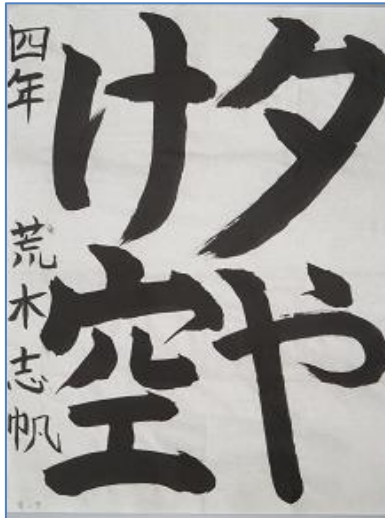 夕や
け空
四年 荒木志帆